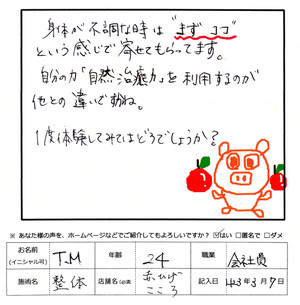 身体が不調な時は"まずココ"
という感じで寄せてもらってます。
自分の力「自然治癒力」を利用するのが
他との違いですかね。
1度体験してみてはどうでしょうか？
※ あなた様の声を、ホームページなどでご紹介してもよろしいですか？ ☑はい □匿名で □ダメ
お名前 (イニシャル可) T.M 年齢 24 職業 会社員
施術名 整体 店舗名 赤ひげ こころ 記入日 H23年3月7日